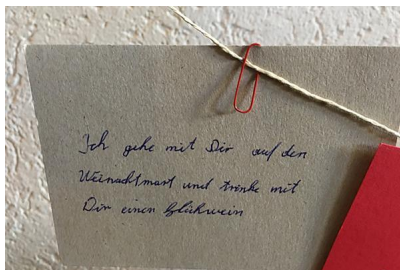 Ich gehe mit Dir auf den
Weinachtmart und trinke mit
Dir einen Glühwein